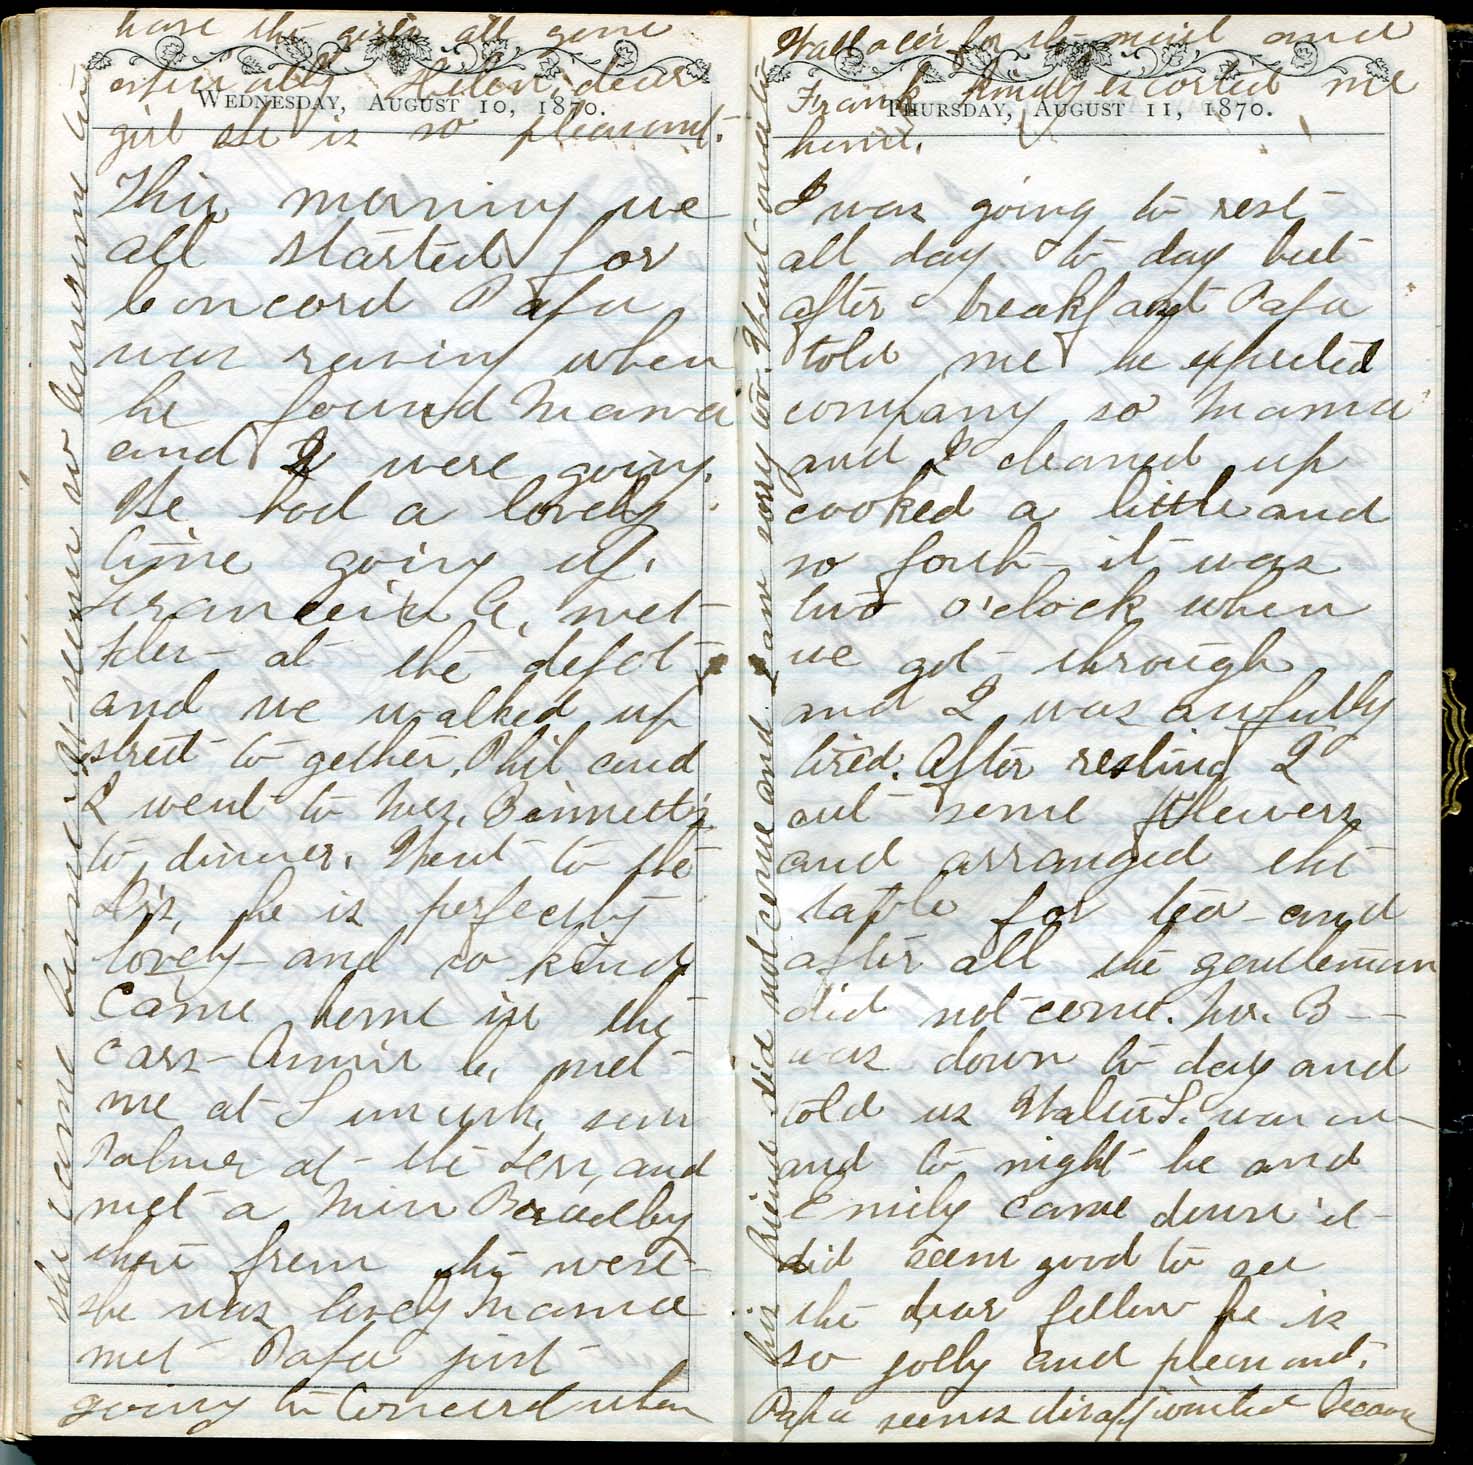 WEDNESDAY, AUGUST 10, 1870.
This morning we
all started for
Concord Papa
was raving when
he found Mama
and I were going.
We had a lovely
time going up.
A. met
her at the depot
and we walked up
street to gether, Phil and
I went to Mrs.
to dinner. Went to the
Drs, he is perfectly
lovely and so kind
Came home in the
cars Annie C. met
me at
Palmer at the and
met a Miss Bradley
there from the west
she was lovely Mama
met Papa just
going to Concord when
she came home. It seems so lonesome to
have the girls all gone
Helen, dear
girl she is so pleasant.
THURSDAY, AUGUST 11, 1870.
I was going to rest
all day to day but
after breakfast Papa
told me he expected
company so Mama
and I cleaned up
cooked a little and
so forth it was
two o'clock when
we got through
and I was awfully
tired. After resting I
cut some flowers
and arranged the
table for tea and
after all the gentleman
did not come. Mr. B--
was down to day and
told us Walter S. was
and to night he and
Emily came down it
did seem good to see
the dear fellow he is
so jolly and pleasant.
Papa seems disappointed because
his friend did not come and I am sorry too. Went over to
Wallace's for the mail and
Frank kindly escorted me
home.